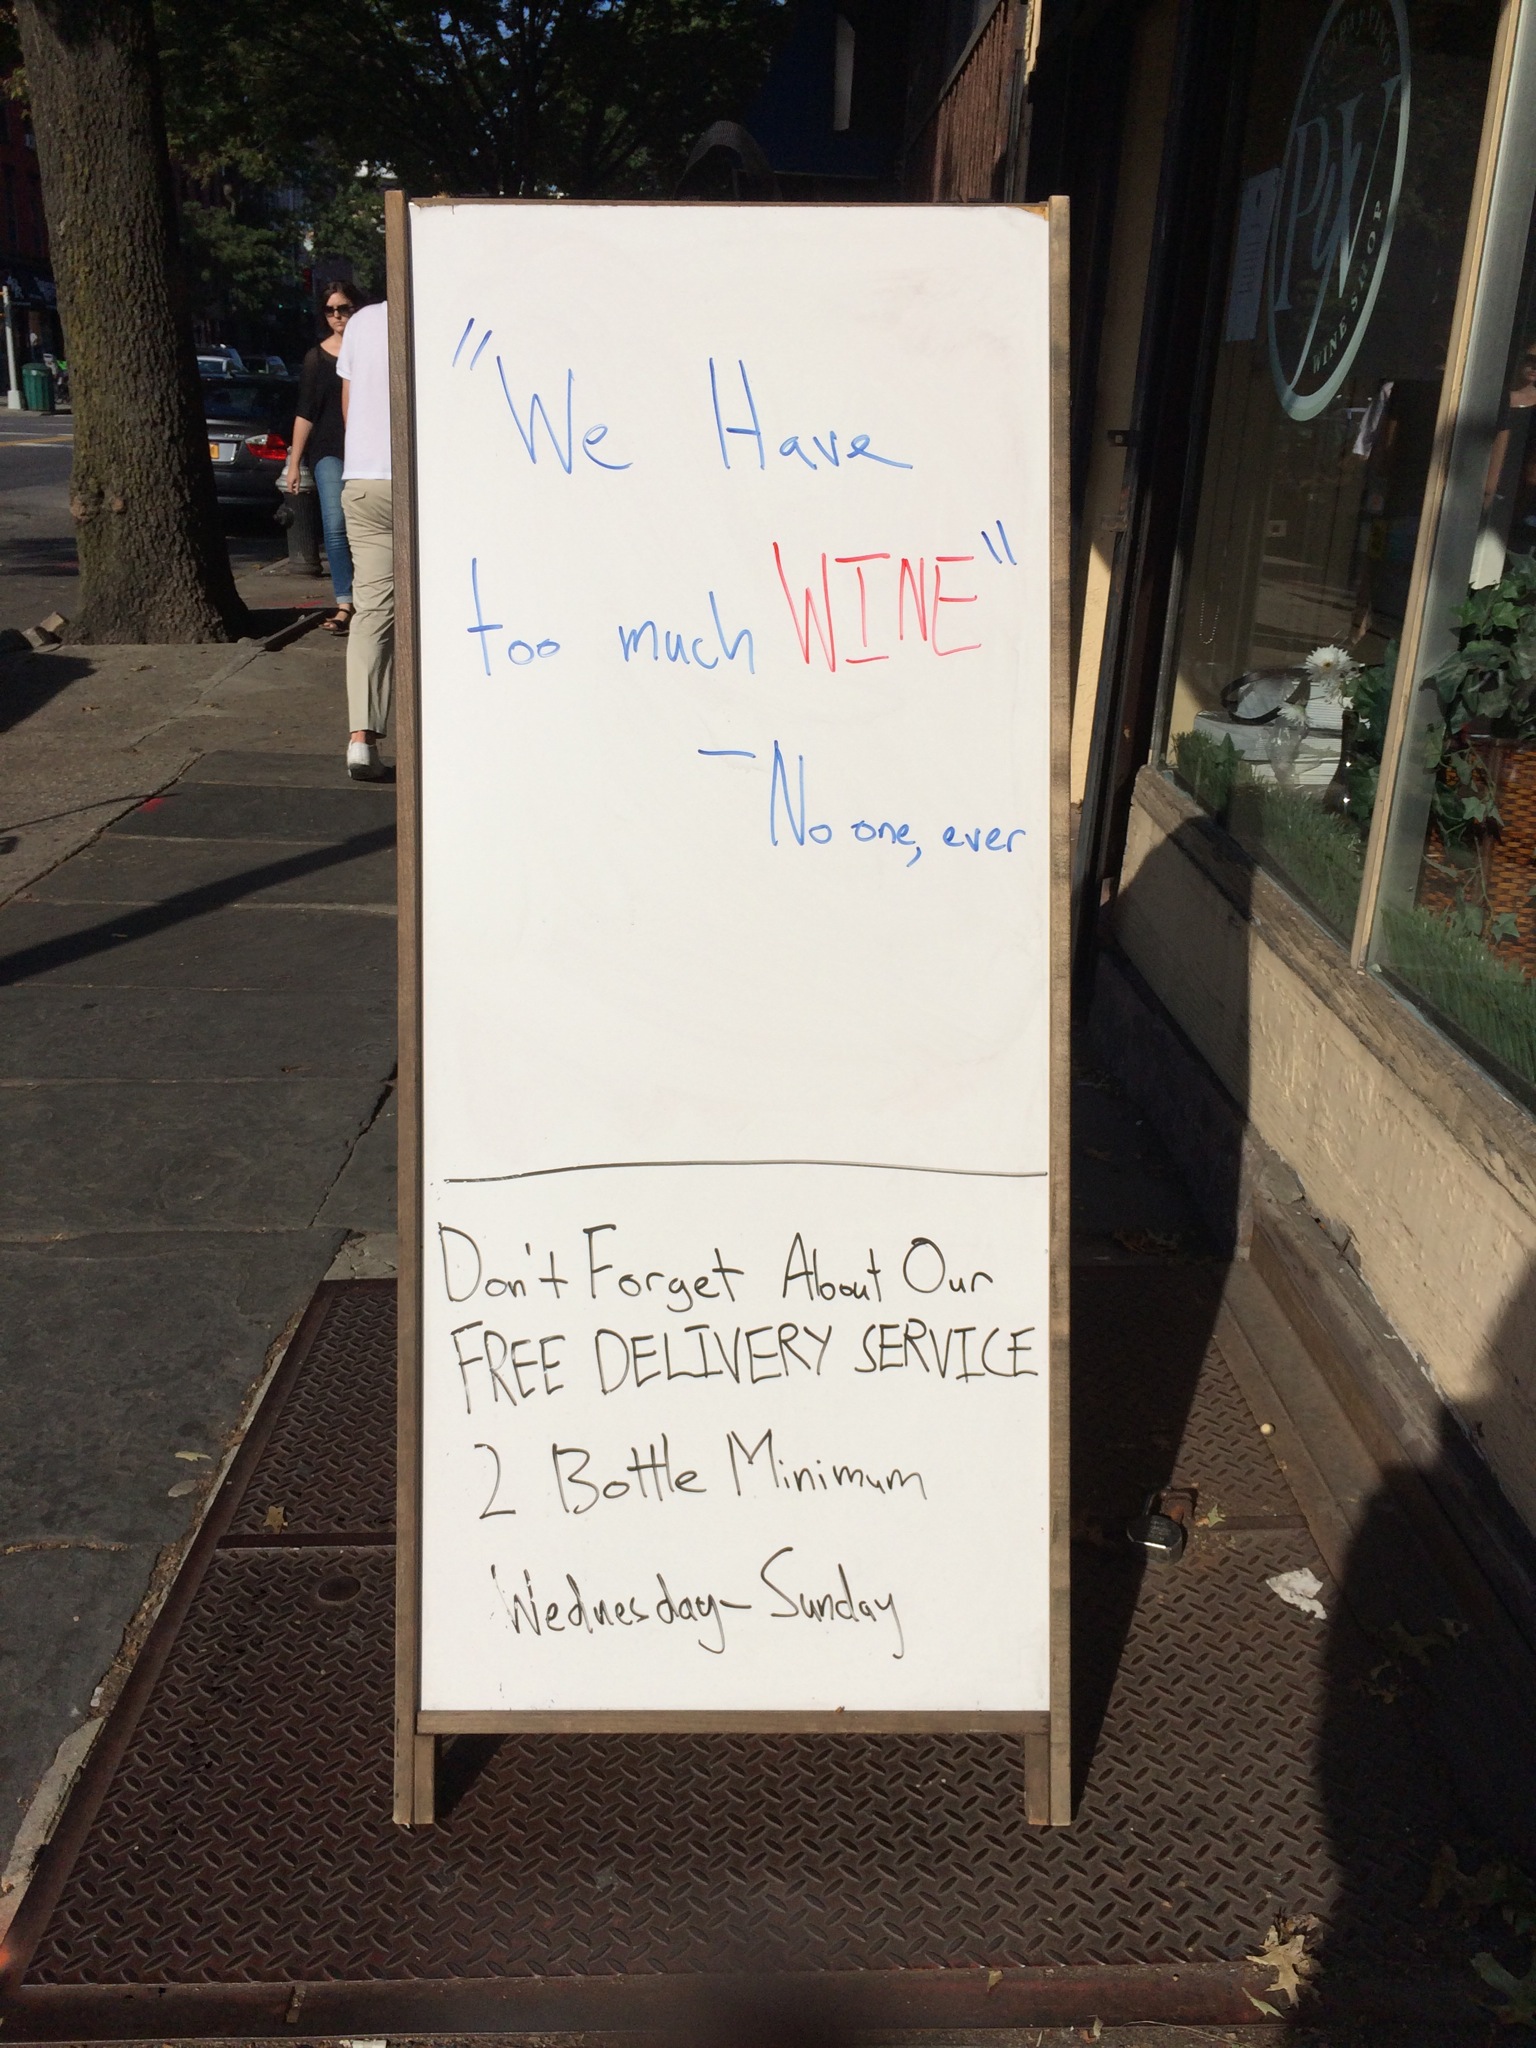 "We Have
too much WINE"
- No one, ever
Don't Forget About Our
FREE DELIVERY SERVICE
2 Bottle Minimum
Wednesday-Sunday
WINE SHOP